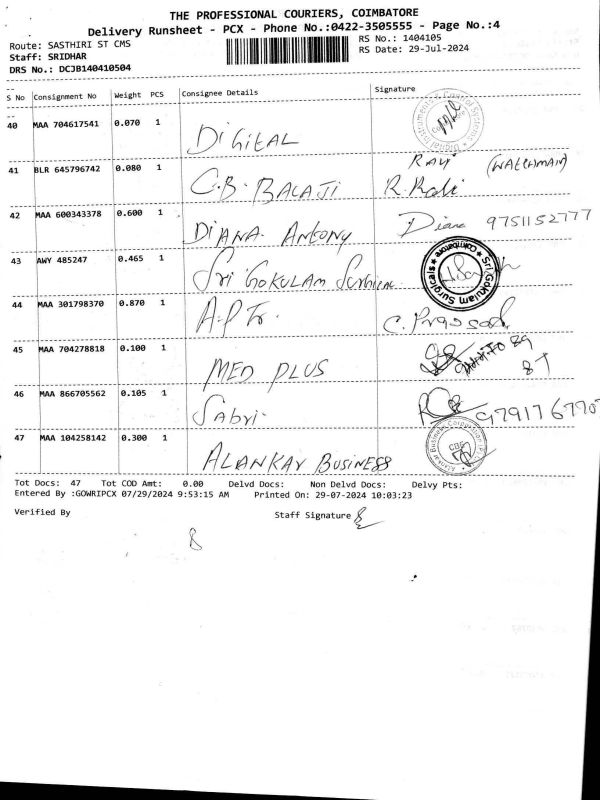 THE PROFESSIONAL COURIERS, COIMBATORE
Delivery Runsheet - PCX - Phone No.:0422-3505555 - Page No.:4
Route: SASTHIRI ST CMS
RS No.: 1404105
Staff: SRIDHAR
RS Date: 29-Jul-2024
DRS No.: DCJB140410504
S No Consignment No Weight PCS Consignee Details Signature
40 MAA 704617541 0.070 1 DIGITAL
41 BLR 645796742 0.080 1 C.B. BALAJI RAVI (WATCHMAN) R. Ravi
42 MAA 600343378 0.600 1 DIANA ANTONY Diana 9751152777
43 AWY 485247 0.465 1 Sri GOKULAM Surgical Sri Gokulam Surgicals Coimbatore
44 MAA 301798370 0.870 1 A.P Tr. C. Prasad
45 MAA 704278818 0.100 1 MED PLUS
46 MAA 866705562 0.105 1 Sabri
47 MAA 104258142 0.300 1 ALANKAR BUSINESS
Tot Docs: 47 Tot COD Amt: 0.00 Delvd Docs: Non Delvd Docs: Delvy Pts:
Entered By :GOWRIPCX 07/29/2024 9:53:15 AM Printed On: 29-07-2024 10:03:23
Verified By Staff Signature